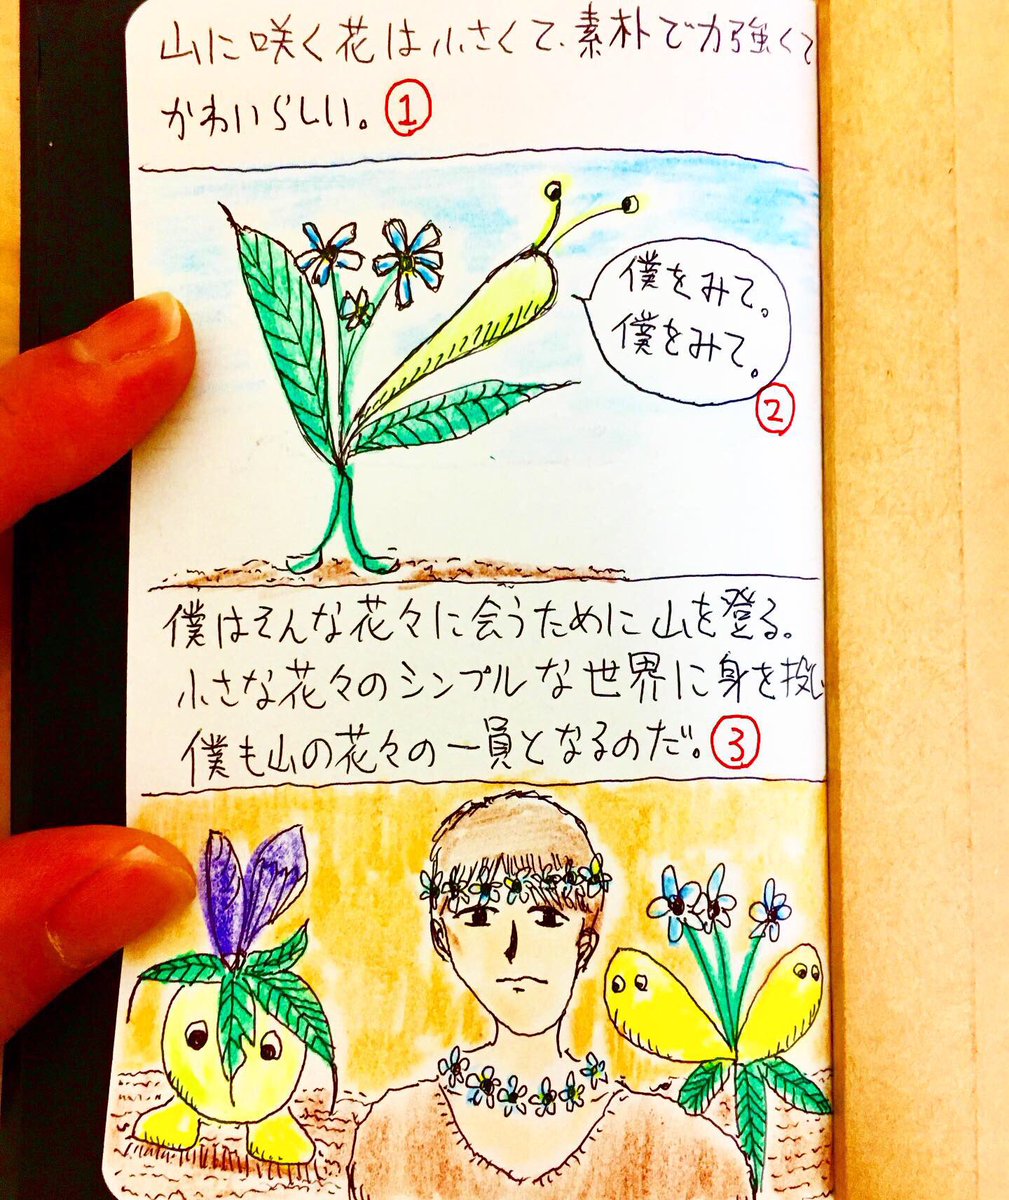 山に咲く花は小さくて、素朴で力強くて
かわいらしい。①
僕をみて。
僕をみて。
②
僕はそんな花々に会うために山を登る。
小さな花々のシンプルな世界に身を投じ
僕も山の花々の一員となるのだ。③